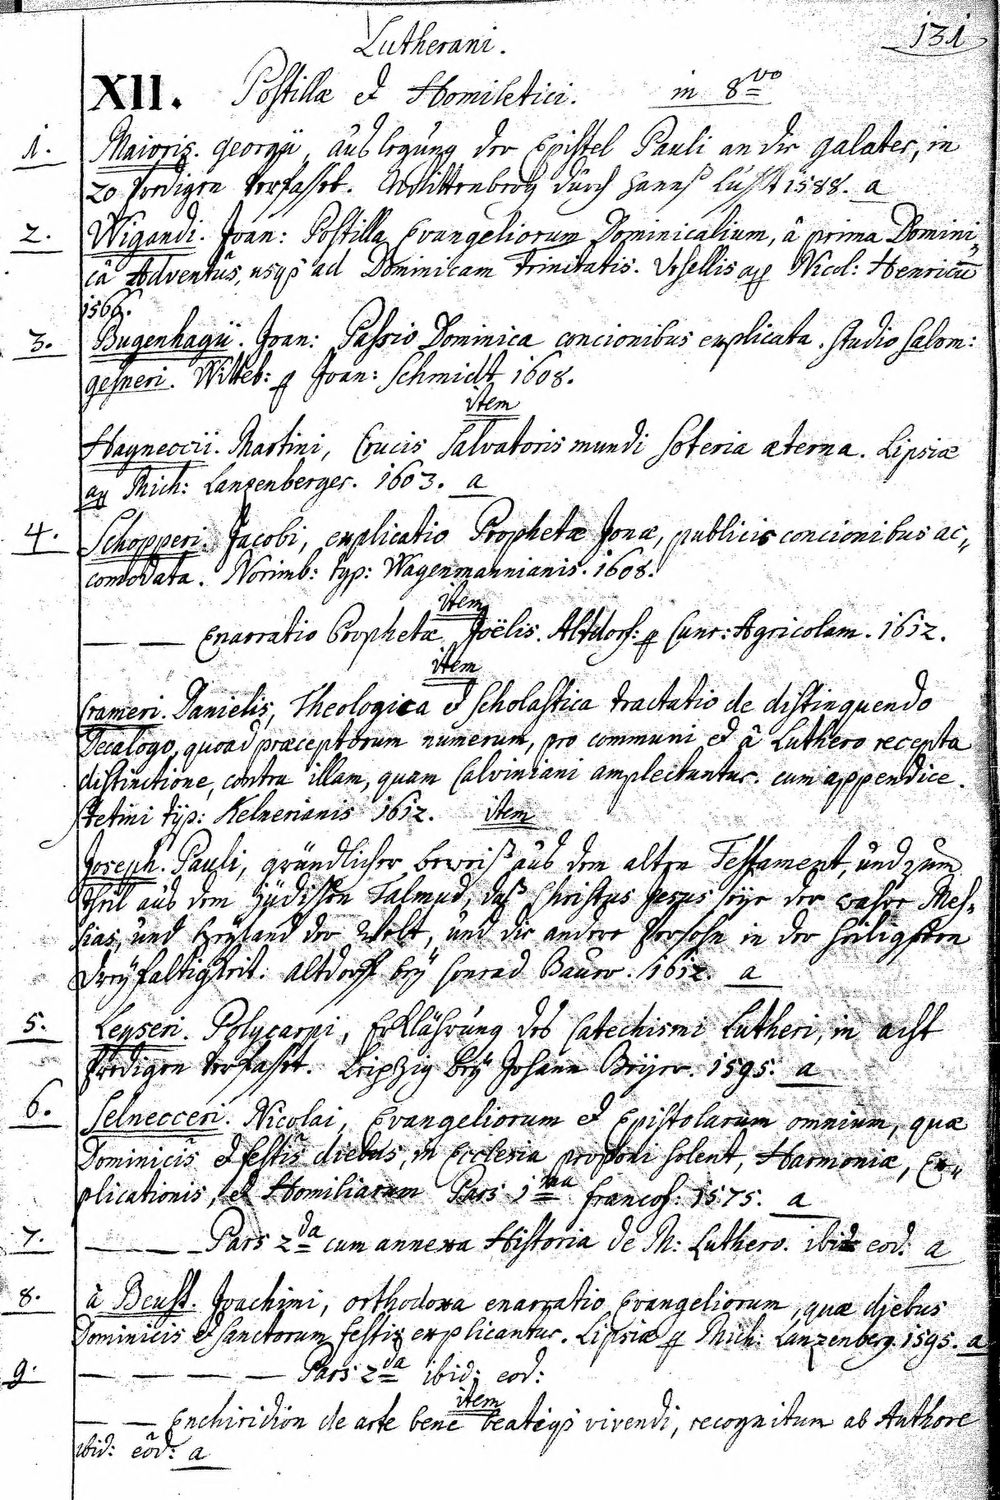 131
Lutherani.
XII. Postillæ et Homiletici. in 8vo
1. Maioris. georgÿ, außlegung der Epistel Pauli an die galater, in
20 predigen verfasset. Wittenberg durch Hannß Lufft 1588. a
2. Wigandi. Joan: Postilla Evangeliorum Dominicalium, â prima Domini„
câ Adventûs, usq3 ad Dominicam Trinitatis. Ursellis ap Nicol: Henricū
1566.
3. Bugenhagÿ. Joan: Passio Dominica concionibus explicata. studio Salom:
gesneri. Witteb: p Joan: Schmidt 1608.
item
Hayneccii. Martini, Crucis Salvatoris mundi Soteria æterna. Lipsiæ
ap Mich: Lanzenberger. 1603. a
4. Schopperi. Jacobi, explicatio Prophetæ Jonæ, publicis concionibus ac„
comodata. Norimb: typ: Wagenmannianis. 1608.
item
— — Enarratio Prophetæ Joëlis. Altdorf: p Cunr: Agricolam. 1612.
item
Crameri. Danielis, Theologica et scholastica tractatio de distinguendo
Decalogo, quoad præceptorum numerum, pro communi et â Luthero recepta
distinctione, contra illam, quam Calviniani amplectuntur. cum appendice.
Stetini tÿp: Kelnerianis 1612. item
Joseph. Pauli, gründlicher beweiß auß dem alten Testament, und zum
theil auß dem Jüdischen Talmud, daß Christus Jesus seye der wahre Mes„
sias, und Heyland der Welt, und die andere Persohn in der heiligsten
Dreyfaltigkeit. Altdorff bey Conrad Baur. 1612. a
5. Leyseri. Polycarpi, Erklährung des Catechismi Lutheri, in acht
Predigen verfasst. Leipzig bey Johann Beyer. 1595. a
6. Selnecceri. Nicolai, Evangeliorum et Epistolarum omnium, quæ
Dominicis et festis diebus, in Ecclesia proponi solent, Harmoniæ, Ex„
plicationis, et Homiliarum Pars 1ma francof: 1575. a
7. — — — Pars 2da cum annexa Historia de M: Luthero. ibid: eod: a
8. â Beust. Joachimi, orthodoxa enarratio Evangeliorum, quæ diebus
Dominicis et sanctorum festis explicantur. Lipsiæ p Mich: Lanzenberg. 1595. a
9. — — — — Pars 2da ibid: eod:
item
— — Enchiridion de arte bene beateq3 vivendi, recognitum ab Authore
ibid: eôd: a